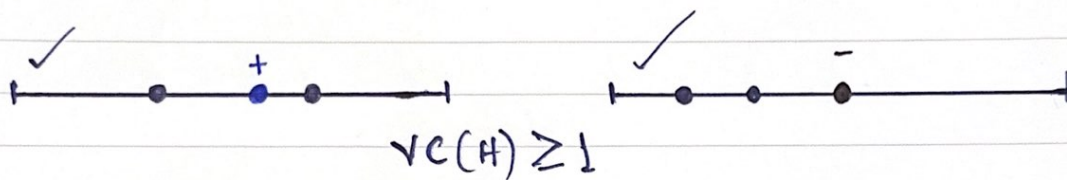 ✓ + ✓ -
VC(H) ≥ 1